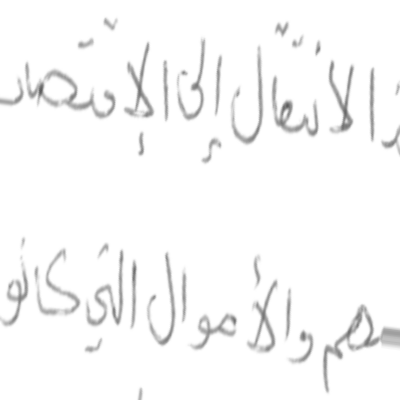 الانتقال إلى الإقتصاد
هم والأموال التي كانو